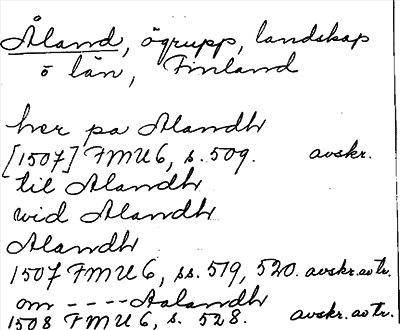 Åland, ögrupp, landskap
o län, Finland
her pa Alandh
[1507] FMU 6, s. 509. avskr.
til Alandh
wid Alandh
Alandh
1507 FMU 6, ss. 519, 520. avskr. av tr.
om ---- Aalandh
1508 FMU 6, s. 528. avskr. av tr.